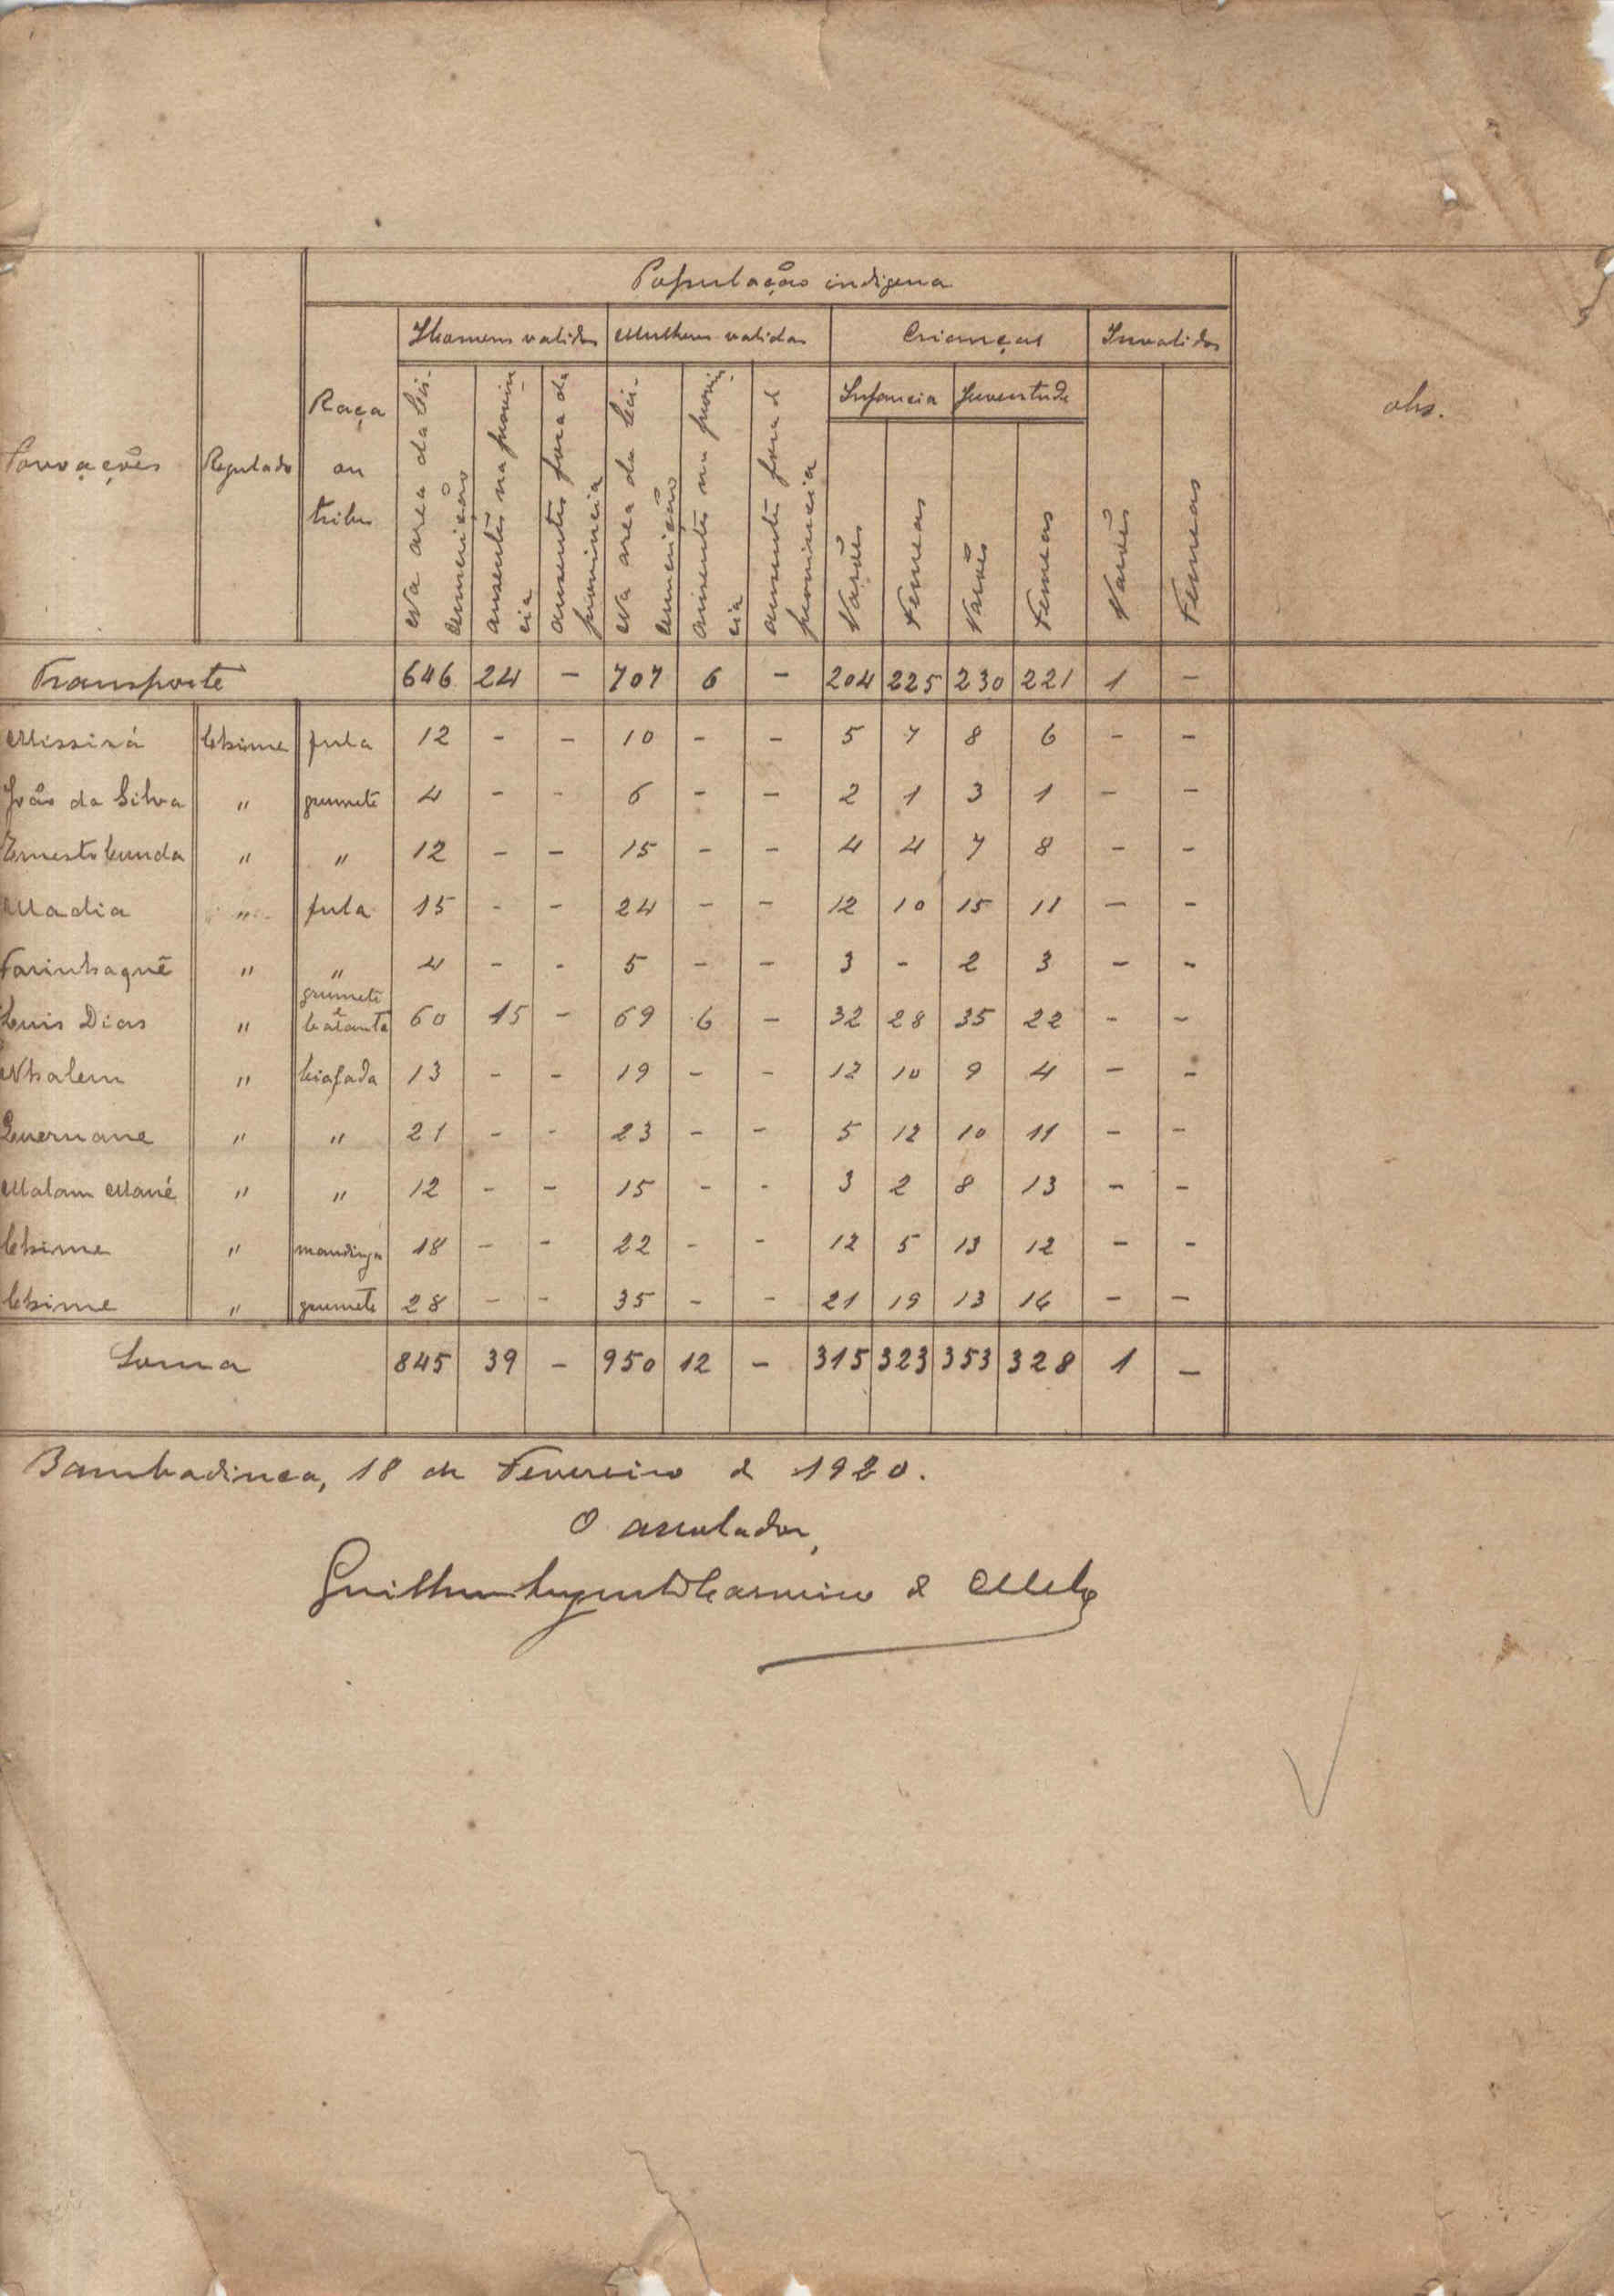 População indigena
Povoações Regulado Raça ou tribu Homens validos Mulheres validas Crianças Invalidos obs.
Infancia Juventude
Na area da circunscrição ausentes na provincia ausentes fora da provincia Na area da circunscrição ausentes na provincia ausentes fora da provincia Varões Femeas Varões Femeas Varões Femeas
Transporte 646 24 - 707 6 - 204 225 230 221 1 -
Missirá Chime fula 12 - - 10 - - 5 7 8 6 - -
João da Silva " grumete 4 - - 6 - - 2 1 3 1 - -
Ernesto Cunda " " 12 - - 15 - - 4 4 7 8 - -
Madia " fula 15 - - 24 - - 12 10 15 11 - -
Farinhaquê " " 4 - - 5 - - 3 - 2 3 - -
Luis Dias " grumete e balanta 60 15 - 69 6 - 32 28 35 22 - -
Nhalem " biafada 13 - - 19 - - 12 10 9 4 - -
" " 21 - - 23 - - 5 12 10 11 - -
Malam Mané " " 12 - - 15 - - 3 2 8 13 - -
Chime " mandinga 18 - - 22 - - 12 5 13 12 - -
Chime " grumete 28 - - 35 - - 21 19 13 16 - -
Soma 845 39 - 950 12 - 315 323 353 328 1 -
Bambadinca, 18 de Fevereiro de 1920.
O arrolador,
Guilherme Augusto Casimiro de Melo